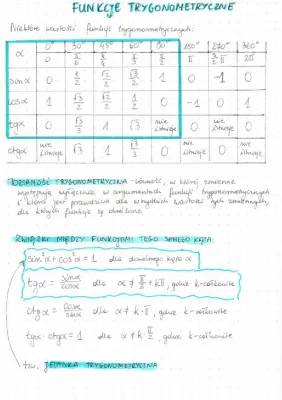 FUNKCJE TRYGONOMETRYCZNE
Niektóre wartości funkcji trygonometrycznych:
α 0° 30° 45° 60° 90° 180° 270° 360°
0 π/6 π/4 π/3 π/2 π 3/2 π 2π
sinα 0 1/2 √2/2 √3/2 1 0 -1 0
cosα 1 √3/2 √2/2 1/2 0 -1 0 1
tgα 0 √3/3 1 √3 nie istnieje 0 nie istnieje 0
ctgα nie istnieje √3 1 √3/3 0 nie istnieje 0 nie istnieje
TOŻSAMOŚĆ TRYGONOMETRYCZNA - równość, w której zmienne
występują wyłącznie w argumentach funkcji trygonometrycznych
i która jest prawdziwa dla wszystkich wartości tych zmiennych,
dla których funkcje są określone.
ZWIĄZKI MIĘDZY FUNKCJAMI TEGO SAMEGO KĄTA
sin²α + cos²α = 1 dla dowolnego kąta α
tgα = sinα/cosα dla α ≠ π/2 + kπ, gdzie k - całkowite
ctgα = cosα/sinα dla α ≠ k·π, gdzie k - całkowite
tgα · ctgα = 1 dla α ≠ k π/2, gdzie k - całkowite
tzw. JEDYNKA TRYGONOMETRYCZNA